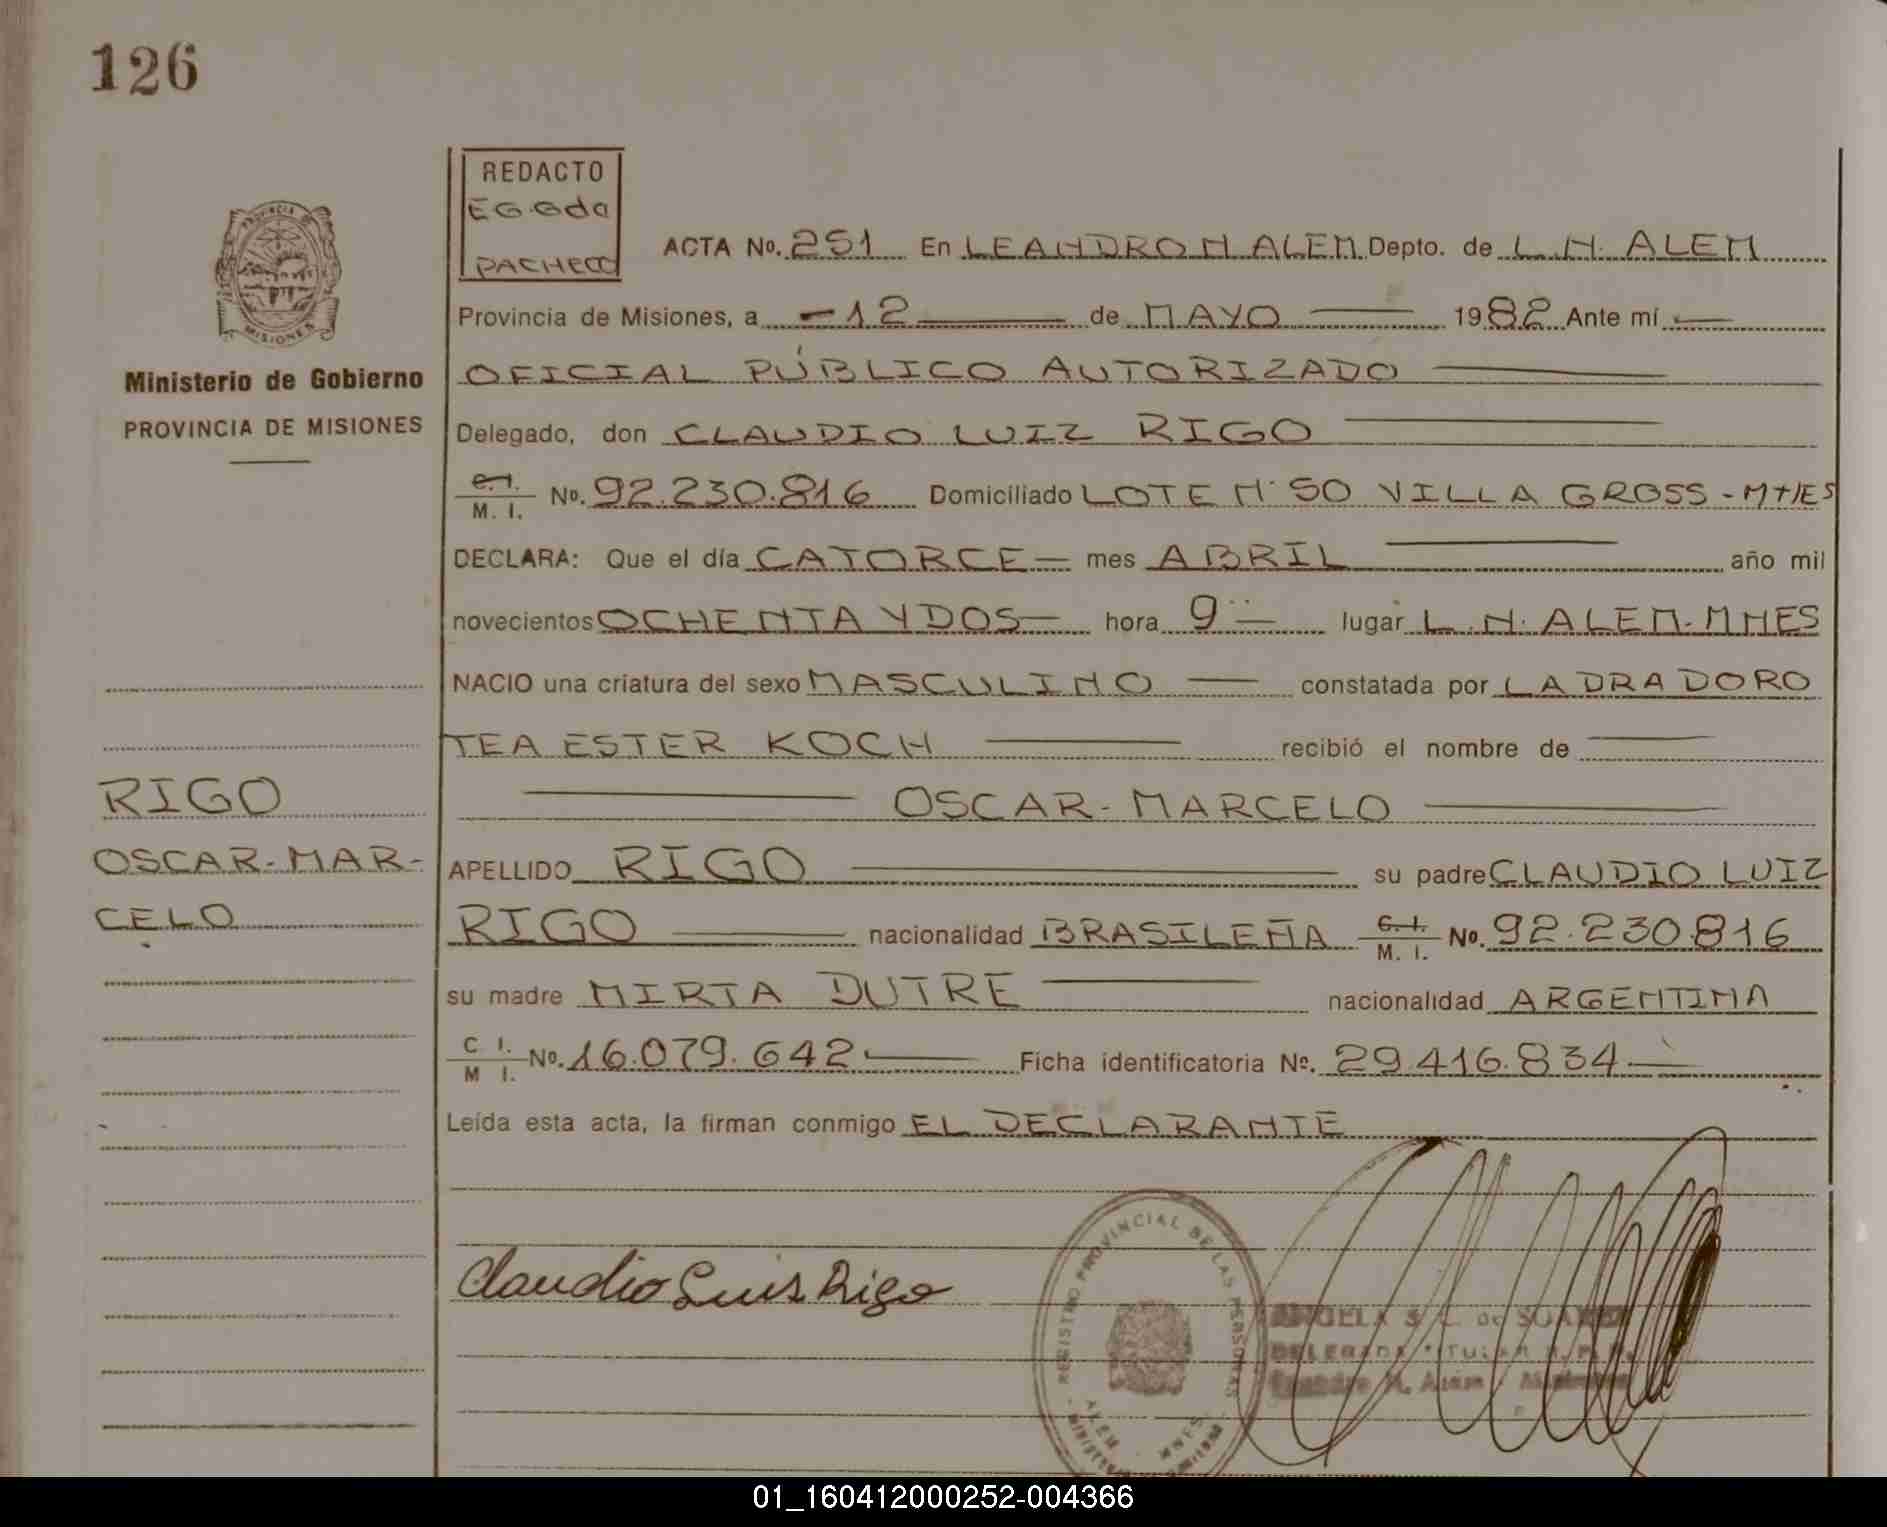 126
REDACTO
EGGda
PACHECO
ACTA Nº. 251 En LEANDRO N ALEM Depto. de L.N. ALEM
Provincia de Misiones, a -12 de MAYO 1982 Ante mí
OFICIAL PÚBLICO AUTORIZADO
Delegado, don CLAUDIO LUIZ RIGO
C. I.
M. I.
No. 92.230.816 Domiciliado LOTE Nº 50 VILLA GROSS -
DECLARA: Que el día CATORCE mes ABRIL año mil
novecientos OCHENTA Y DOS hora 9 lugar L.N. ALEM. MNES
NACIO una criatura del sexo MASCULINO constatada por LA DRA DORO
TEA ESTER KOCH recibió el nombre de
OSCAR-MARCELO
APELLIDO RIGO su padre CLAUDIO LUIZ
RIGO nacionalidad BRASILEÑA C. I. M. I. No. 92.230.816
su madre MIRTA DUTRE nacionalidad ARGENTINA
C I. M I. No. 16.079.642 Ficha identificatoria Nº. 29.416.834
Leída esta acta, la firman conmigo EL DECLARANTE
Claudio Luis Rigo
PROVINCIA DE
MISIONES
Ministerio de Gobierno
PROVINCIA DE MISIONES
RIGO
OSCAR-MAR-
CELO
REGISTRO PROVINCIAL DE LAS PERSONAS
ALEM MNES
ANGELA S. C. de SUAREZ
DELEGADA TITULAR R.P.P.
Leandro N. Alem - Misiones
01_160412000252-004366